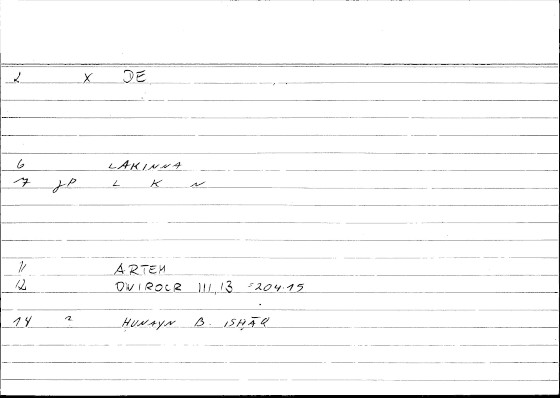 2 X DE
6 LAKINNA
7 gP L K N
11 ARTEM
12 ONIROCR III,13 =204.15
14 2 HUNAYN B. ISḤĀQ